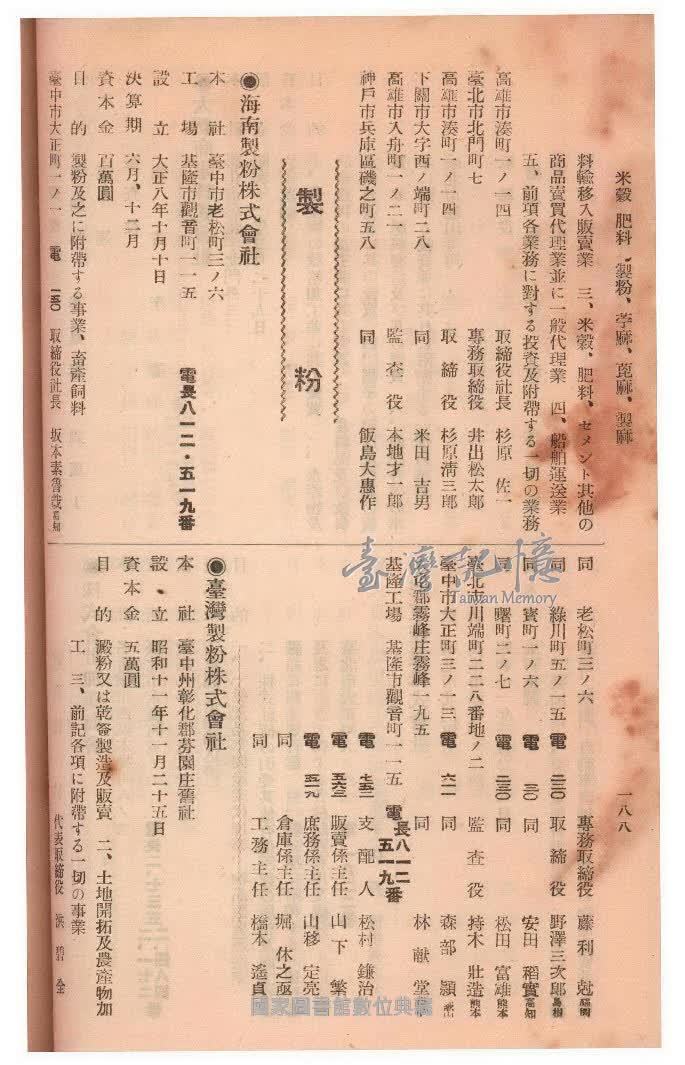 米穀、肥料、製粉、苧麻、蓖麻、製麻
一八八
料輸移入販賣業　三、米穀、肥料、セメント其他の
商品賣買代理業並に一般代理業　四、船舶運送業
五、前項各業務に對する投資及附帶する一切の業務
高雄市湊町一ノ一四　取締役社長　杉原佐一
臺北市北門町七　專務取締役　井出松太郎
高雄市湊町一ノ一四　取締役　杉原淸三郎
下關市大字西ノ端町二八　同　米田吉男
高雄市入舟町一ノ二一　監查役　本地才一郎
神戶市兵庫區磯之町五八　同　飯島大惠作
製粉
◉海南製粉株式會社
本社　臺中市老松町三ノ六　電長八一二・五一九番
工場　基隆市觀音町一一五
設立　大正八年十月十日
決算期　六月、十二月
資本金　百萬圓
目的　製粉及之に附帶する事業、畜產飼料
臺中市大正町一ノ一　電　一五〇　取締役社長　坂本素魯哉　高知
同　老松町三ノ六　專務取締役　藤利尅　福岡
同　綠川町五ノ一五　電　二三〇　取締役　野澤三次郎　島根
同　寶町一ノ六　電　三〇　同　安田稻實　高知
同　曙町二ノ七　電　二三〇　同　松田富雄　熊本
臺北市川端町二二八番地ノ二　監查役　持木壯造　熊本
臺中市大正町三ノ一三　電　六二一　同　森部穎
郡霧峰庄霧峰一九五　同　林献堂
基隆工場　基隆市觀音町一一五　電長八一二　五一九番
電　七五二　支配人　松村鎌治
電　五六三　販賣係主任　山下繁
電　五一九　庶務係主任　山移定亮
同　倉庫係主任　堀休之亟
同　工務主任　橋本遙貞
◉臺灣製粉株式會社
本社　臺中州彰化郡芬園庄舊社
設立　昭和十一年十一月二十五日
資本金　五萬圓
目的　澱粉又は乾薯製造及販賣　二、土地開拓及農產物加
工　三、前記各項に附帶する一切の事業
代表取締役　洪碧全
臺灣記憶
Taiwan Memory
國家圖書館數位典藏